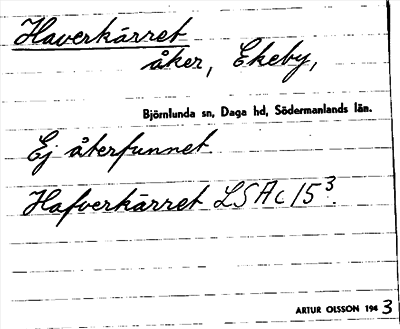 Haverkärret
åker, Ekeby,
Björnlunda sn, Daga hd, Södermanlands län.
Ej återfunnet.
Hafverkärret LSA c 15³
ARTUR OLSSON 1943